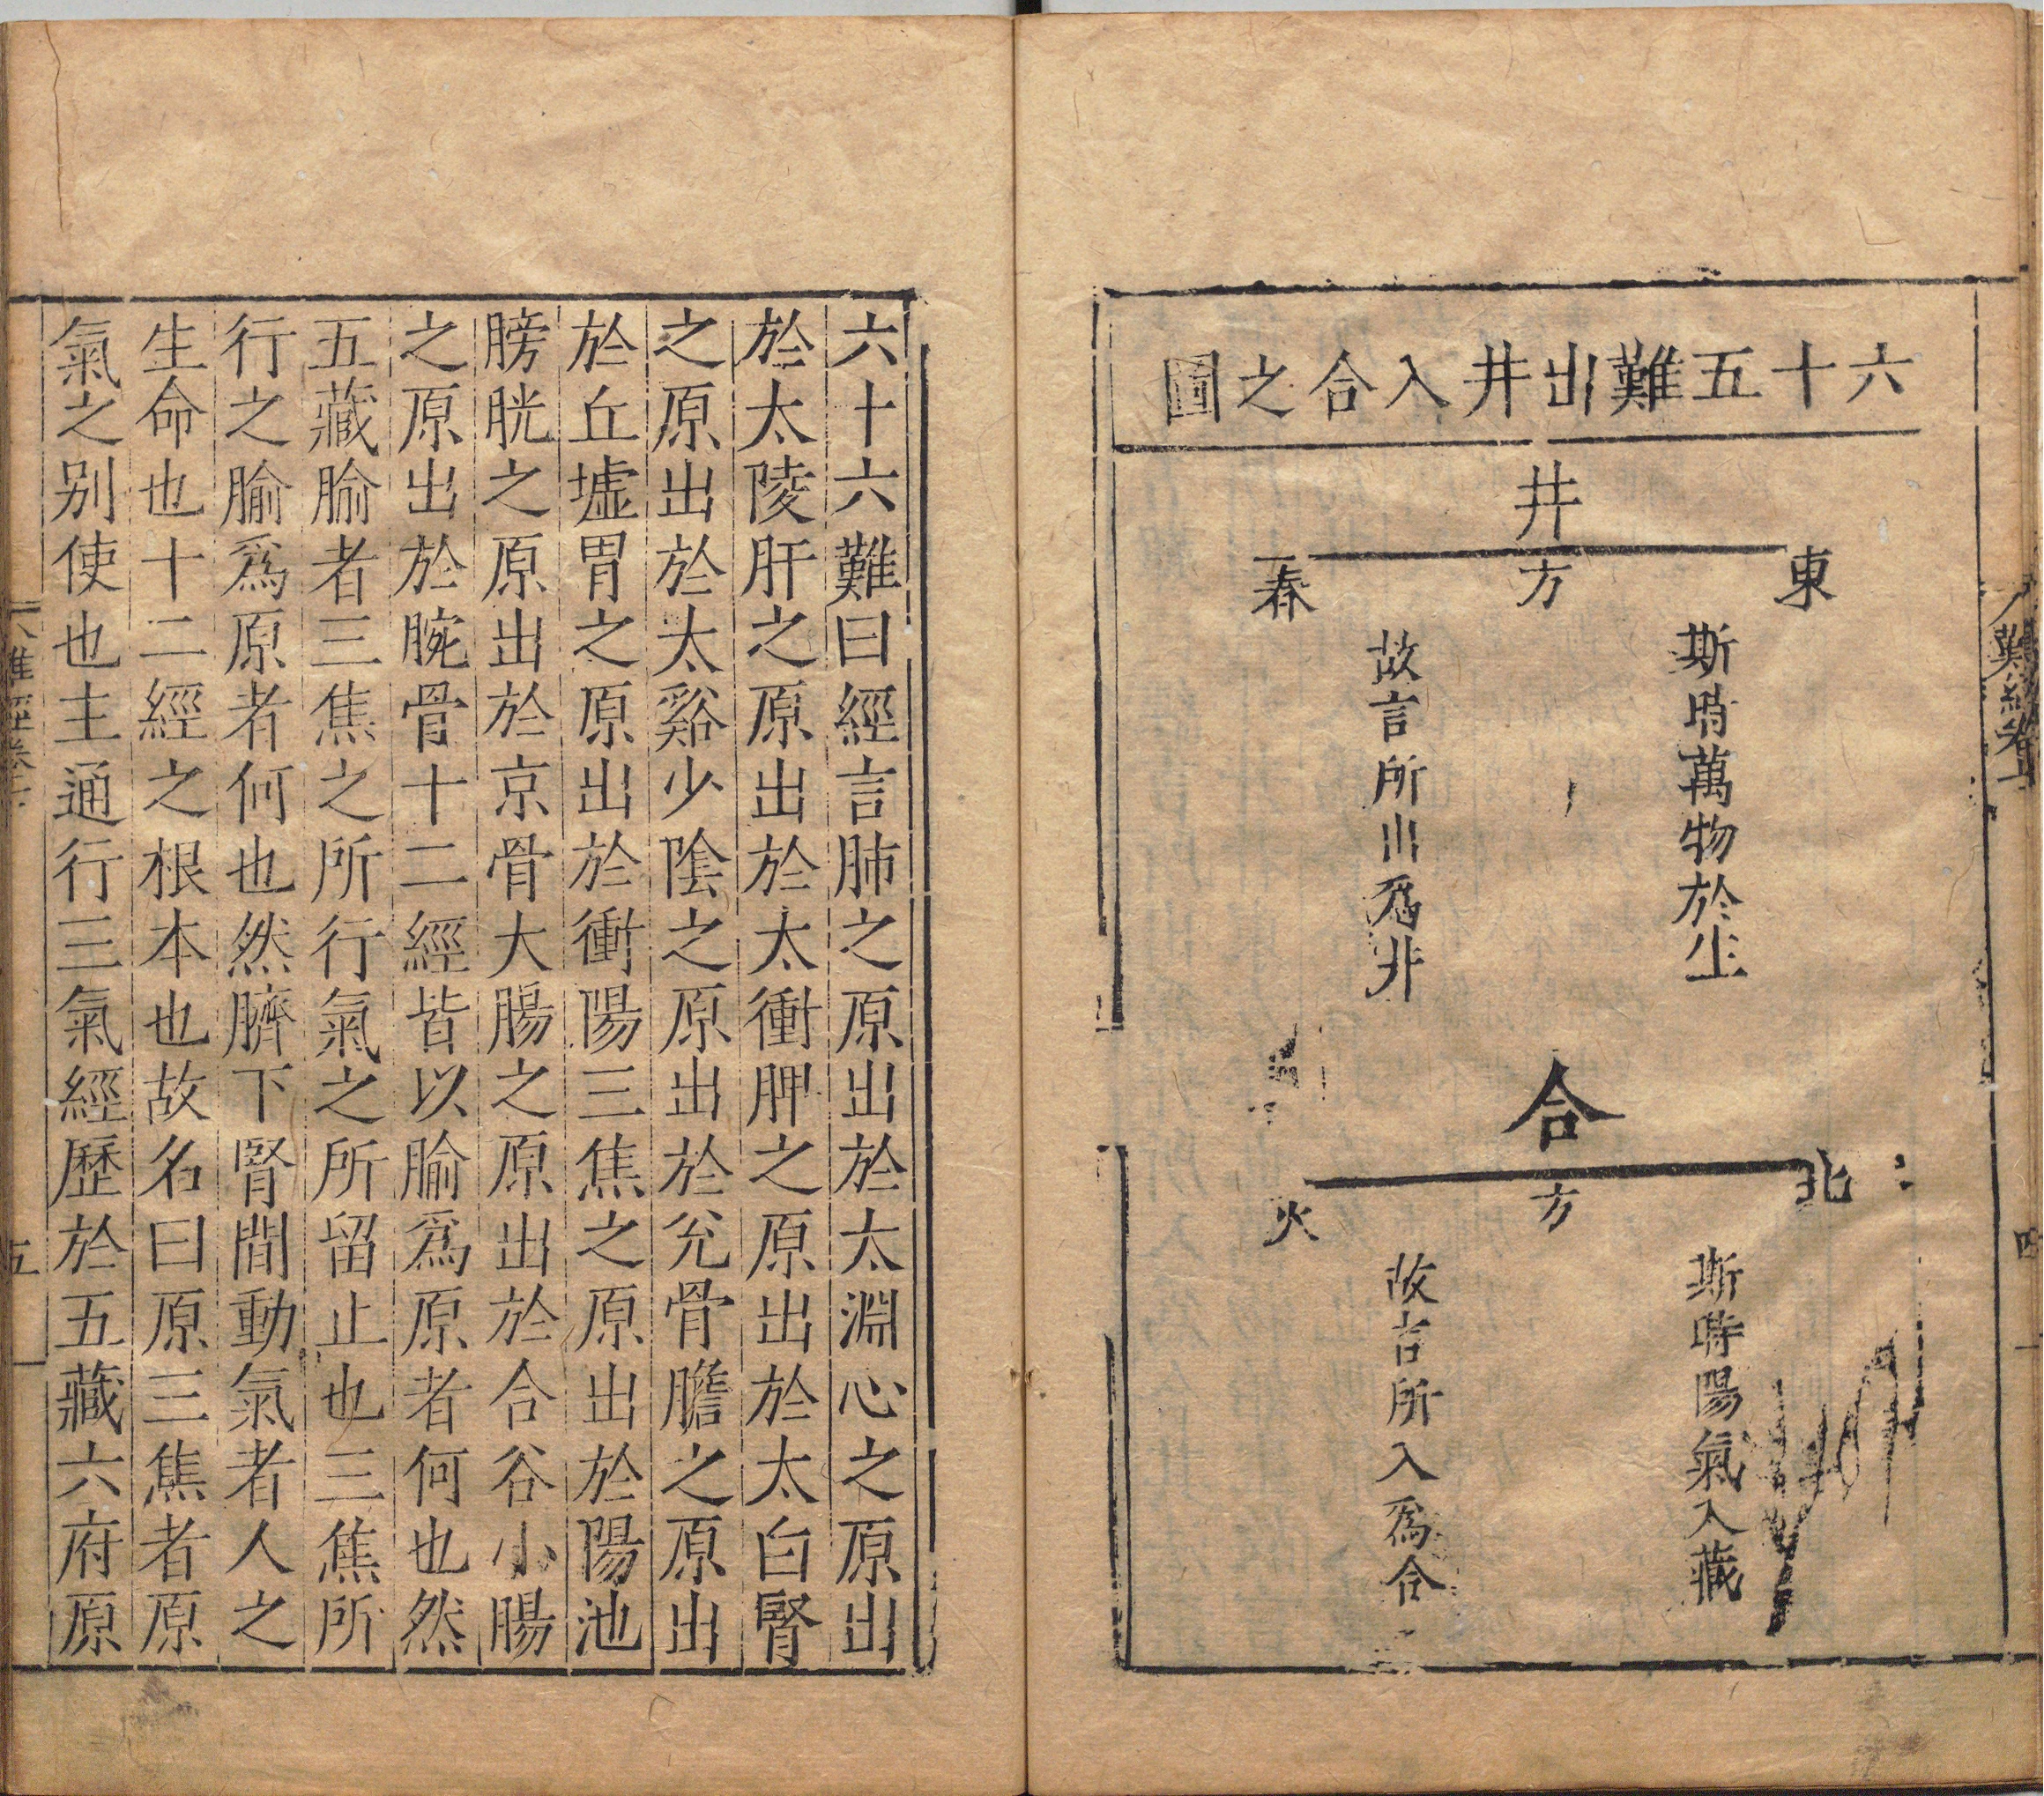 六十五難出井入合之圖
井
東
方
春
斯時萬物於生
故言所出爲井
合
北
方
火
斯時陽氣入藏
故言所入爲合
四
六十六難曰經言肺之原出於太淵心之原出
於太陵肝之原出於太衝脾之原出於太白腎
之原出於太谿少陰之原出於兊骨膽之原出
於丘墟胃之原出於衝陽三焦之原出於陽池
膀胱之原出於京骨大腸之原出於合谷小腸
之原出於腕骨十二經皆以腧爲原者何也然
五藏腧者三焦之所行氣之所留止也三焦所
行之腧爲原者何也然臍下腎間動氣者人之
生命也十二經之根本也故名曰原三焦者原
氣之别使也主通行三氣經歷於五藏六府原
五